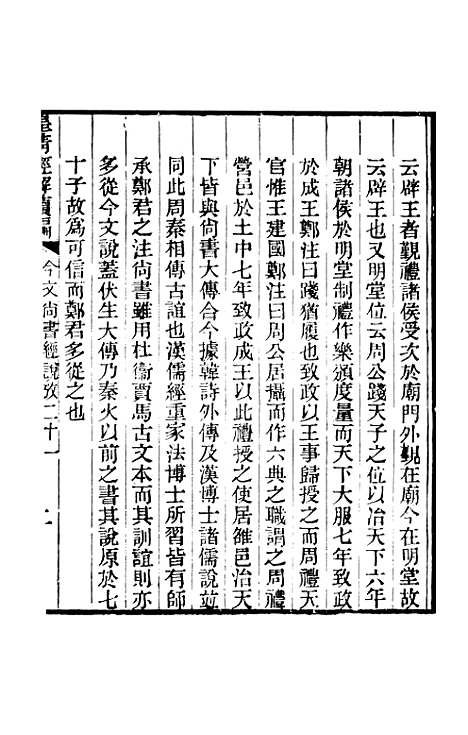 云辟王者覲禮諸侯受次於廟門外覲在廟今在明堂故
云辟王也又明堂位云周公踐天子之位以治天下六年
朝諸侯於明堂制禮作樂頒度量而天下大服七年致政
於成王鄭注曰踐猶履也致政以王事歸授之而周禮天
官惟王建國鄭注曰周公居攝而作六典之職謂之周禮
營邑於土中七年致政成王以此禮授之使居雒邑治天
下皆與尚書大傳合今據韓詩外傳及漢博士諸儒說並
同此周秦相傳古誼也漢儒經重家法博士所習皆有師
承鄭君之注尚書雖用杜衛賈馬古文本而其訓誼則亦
多從今文說蓋伏生大傳乃秦火以前之書其說原於七
十子故為可信而鄭君多從之也
皇清經解續編 今文尚書經說攷二十一 二